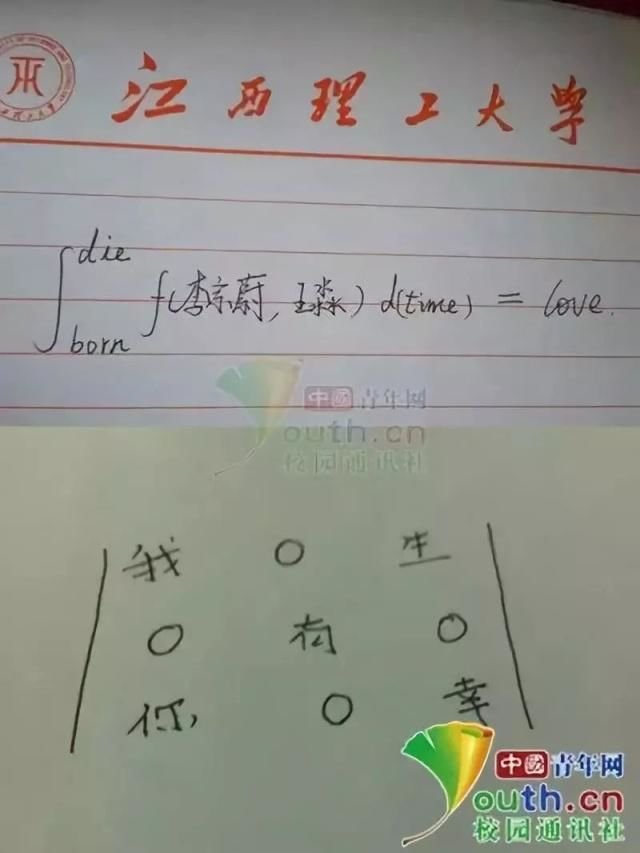 江西理工大学
∫_born^die f(李宗蔚, 王淼) d(time) = love.
中國青年网
outh.cn
校园通讯社
我 0 生
0 有 0
你, 0 幸
中國青年网
Youth.cn
校园通讯社